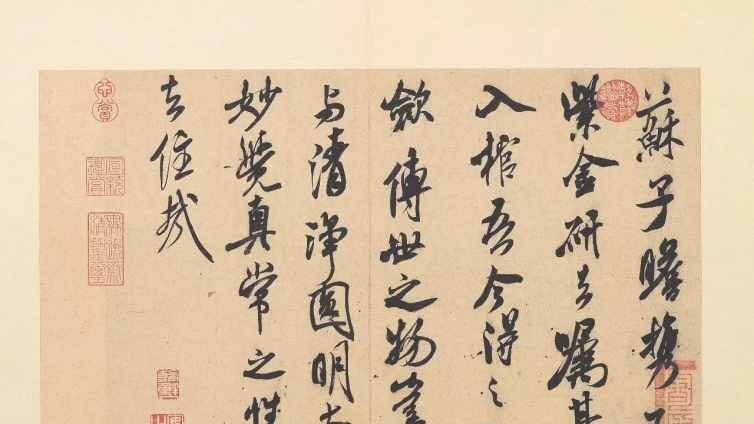 蘇子瞻携
紫金研去嘱其
入棺吾今得之
斂傳世之物豈
与清淨圓明
妙覺真常之性
去住哉